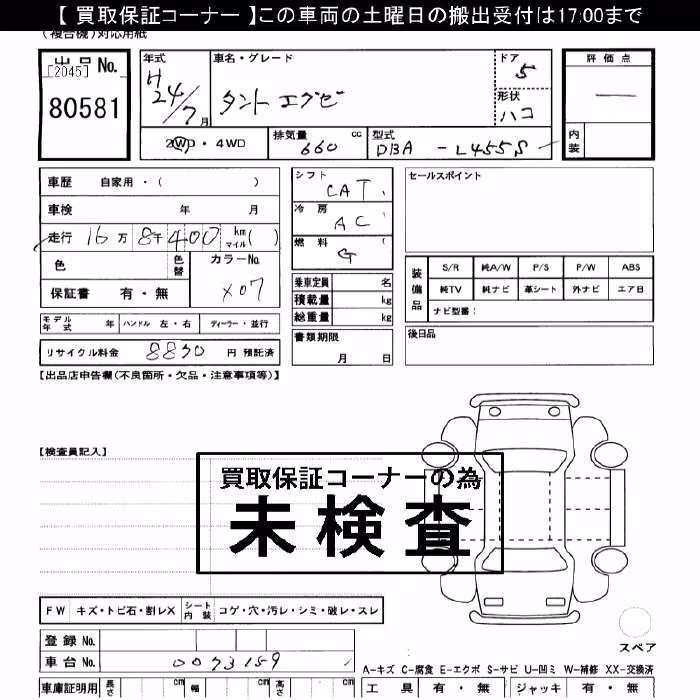 【 買取保証コーナー 】この車両の土曜日の搬出受付は17:00まで
(複合機)対応用紙
出品No.
[2045]
80581
年式 H24/7月
車名・グレード タント エグゼ
ドア 5
形状 ハコ
評価点 —
内装
2WD・4WD
排気量 660 cc
型式 DBA-L455S
車歴 自家用・( )
車検 年 月
走行 16万8千400 km マイル( )
色 色替 カラーNo. X07
保証書 有・無
モデル年式 年 ハンドル 左・右 ディーラー・並行
リサイクル料金 8830 円 預託済
シフト CAT
冷房 AC
燃料 G ( )
乗車定員 名
積載量 kg
総重量 kg
書類期限 月 日
セールスポイント
装備品 S/R 純A/W P/S P/W ABS
純TV 純ナビ 革シート 外ナビ エア日
ナビ型番:
後日品
【出品店申告欄(不良箇所・欠品・注意事項等)】
【検査員記入】
買取保証コーナーの為
未検査
FW キズ・トビ石・割レX シート内装 コゲ・穴・汚レ・シミ・破レ・スレ
登録 No.
車台 No. 0073159
スペア
A-キズ C-腐食 E-エクボ S-サビ U-凹ミ W-補修 XX-交換済
車庫証明用 長さ cm 幅 cm 高さ cm
工具 有・無 ジャッキ 有・無